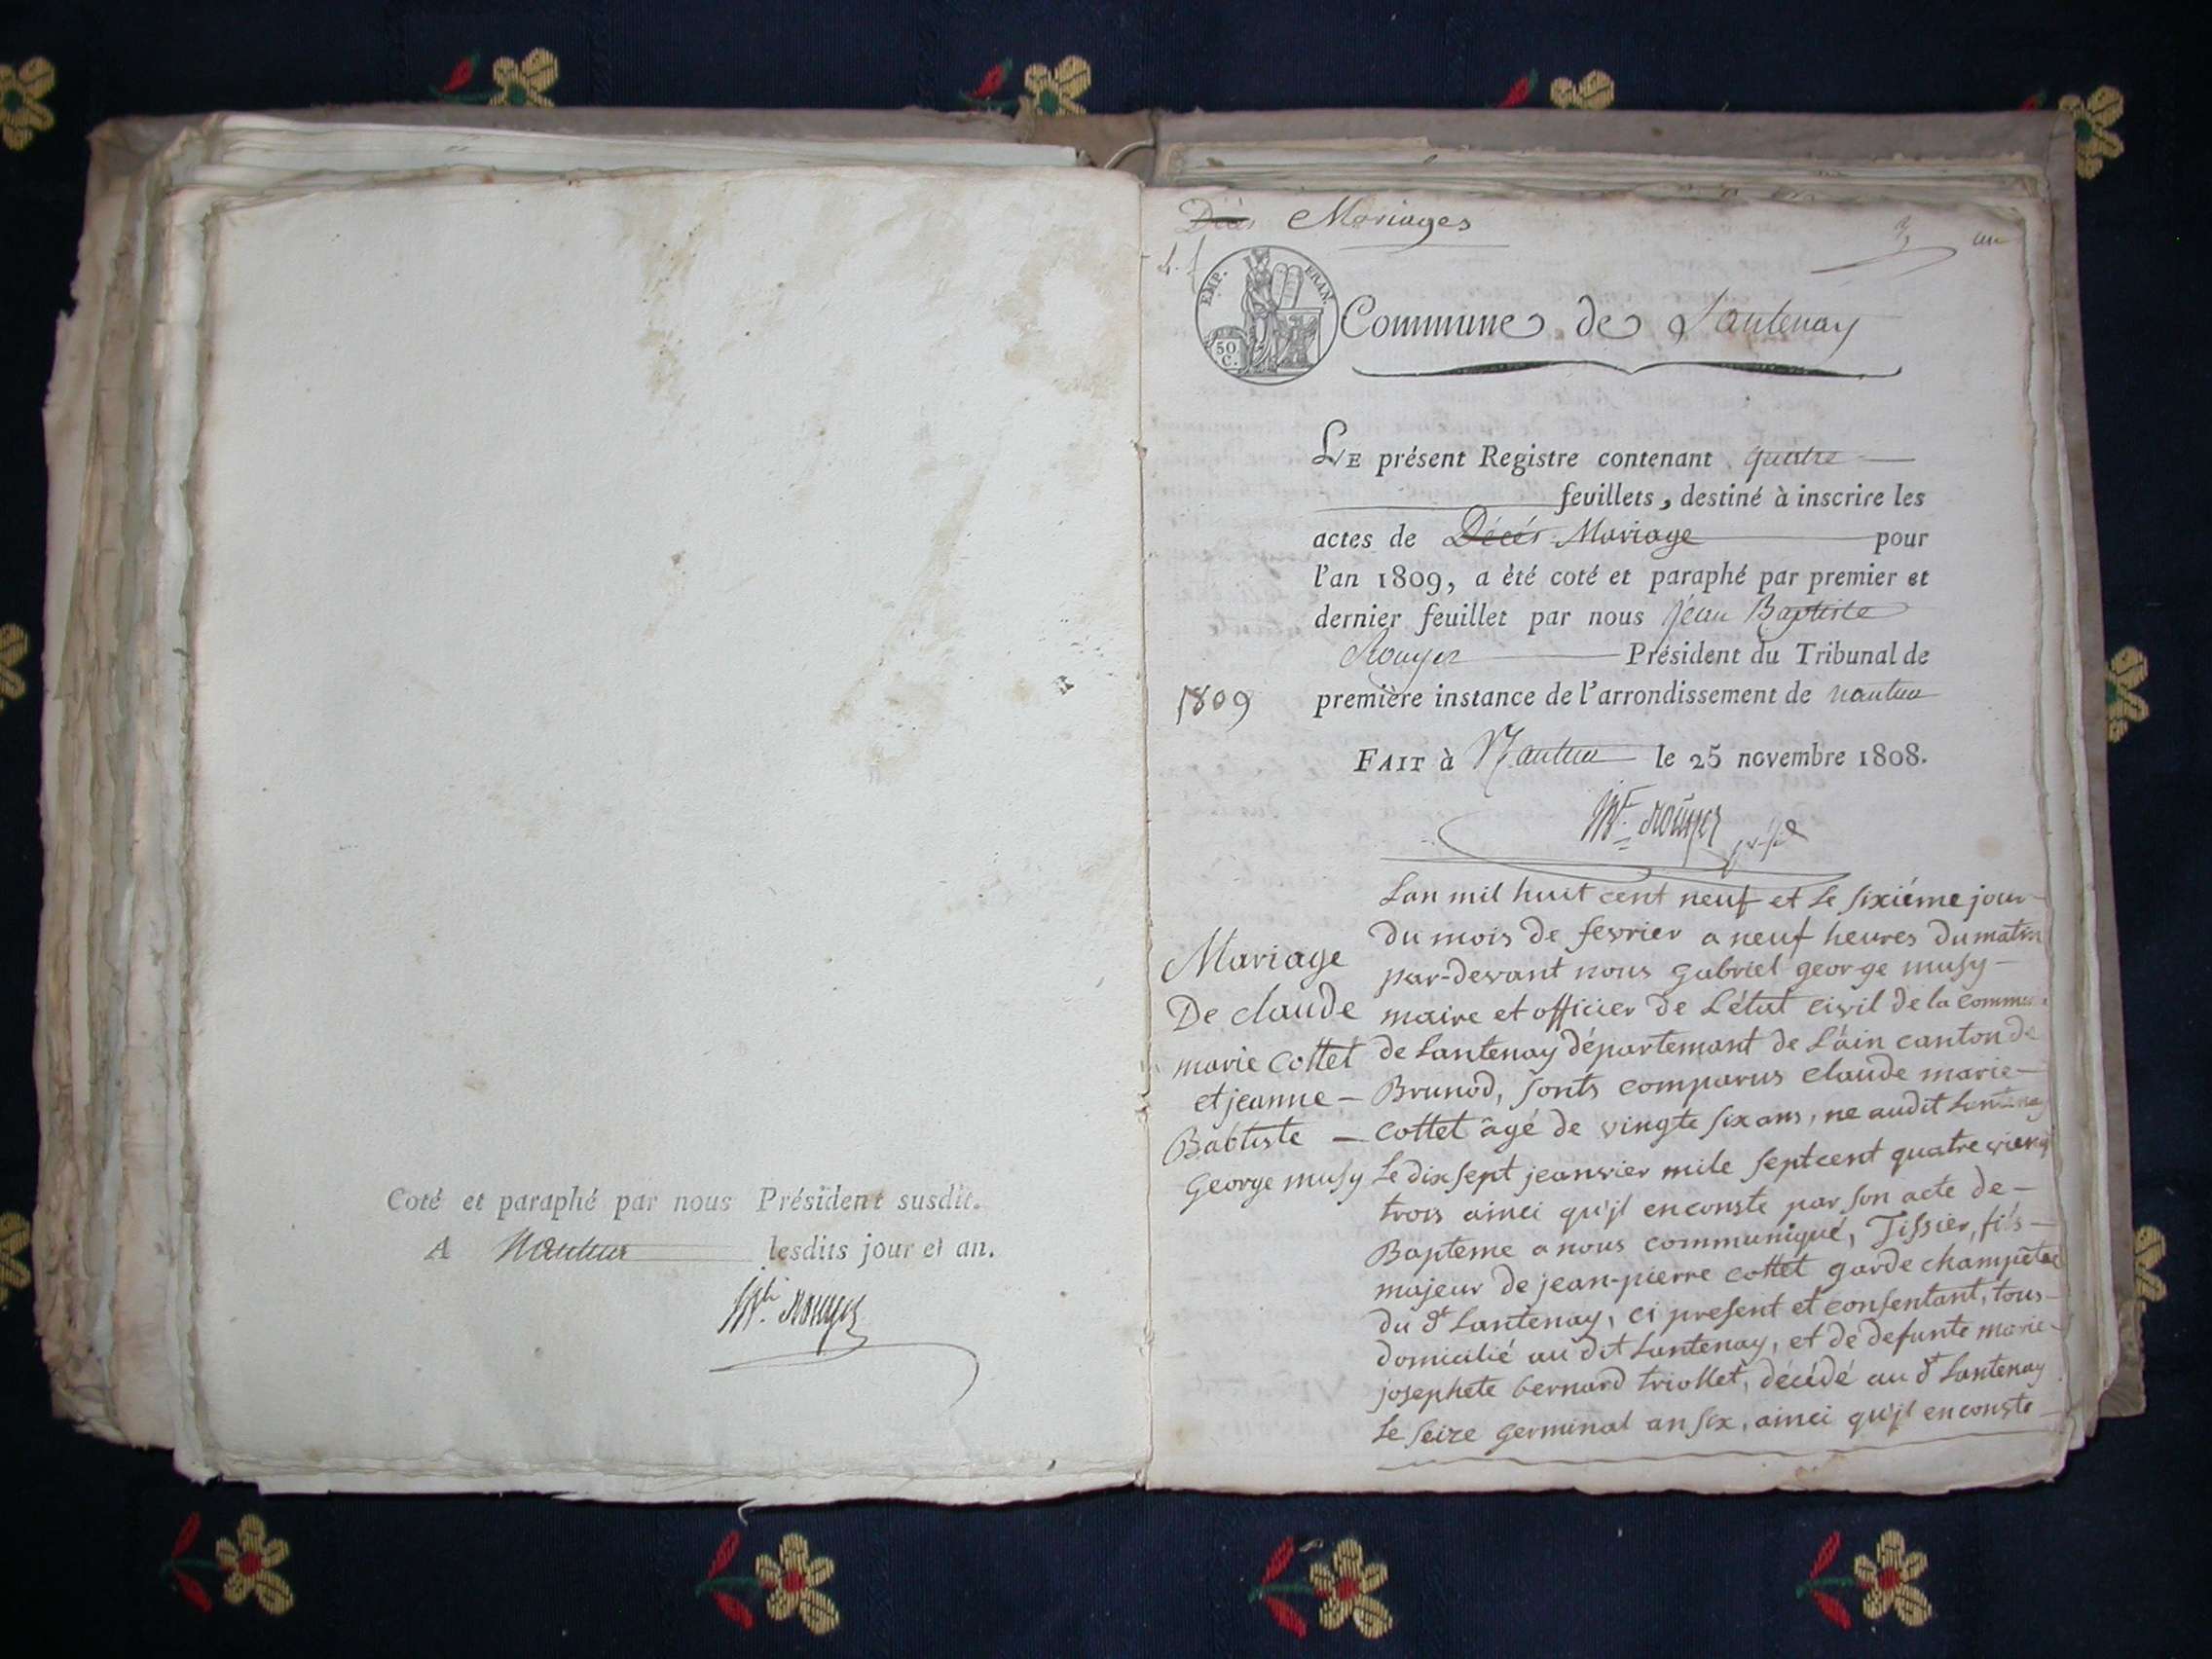 Coté et paraphé par nous Président susdit.
A Nantua lesdits jour et an.
Rouyer
Décès Mariages
un
EMP. FRAN.
50
C.
Commune de Lantenay
LE présent Registre contenant quatre
feuillets, destiné à inscrire les
actes de Décés Mariage pour
l'an 1809, a été coté et paraphé par premier et
dernier feuillet par nous Jean Baptiste
Rouyer Président du Tribunal de
première instance de l'arrondissement de nantua
1809
FAIT à Nantua le 25 novembre 1808.
Rouyer présid
Mariage
De claude
marie Cottet
et jeanne -
Babtiste -
George musy
Lan mil huit cent neuf et Le sixiéme jour
du mois de fevrier a neuf heures du matin
par-devant nous Gabriel george musy -
maire et officier de L'état civil de la Commun
de Lantenay départemant de L'ain canton de
Brunod, sonts comparus claude marie -
Cottet âgé de vingte six ans, ne audit Lantenay
Le dix sept jeanvier mile septcent quatre vieng
trois ainci qu'jl enconste par son acte de -
Bapteme a nous communiqué, Tissier, fils -
majeur de jean-pierre cottet garde champêtre
du dt Lantenay, ci present et consentant, tous -
domicilié au dit Lantenay, et de defunte marie -
josephete bernard triollet, décédé au dt Lantenay
Le seize germinal an six, ainci qu'jl enconste -